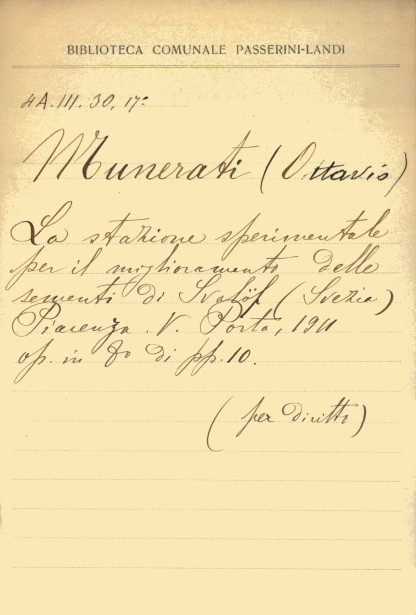 BIBLIOTECA COMUNALE PASSERINI-LANDI
4A.III.30,17º
Munerati (Ottavio)
La stazione sperimentale
per il miglioramento delle
sementi di Svalöf (Svezia)
Piacenza. V. Porta, 1911
op. in 8º di pp. 10.
(per diritto)